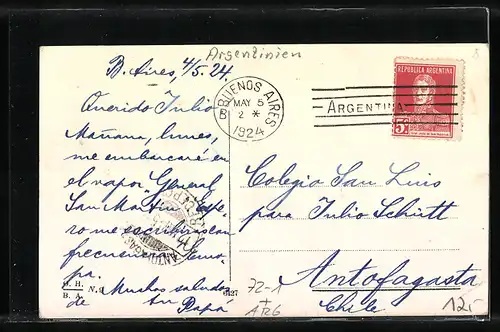 Argentinien
B. Aires, 4/5.24,
Querido Julio
Mañana, lunes,
me embarcaré en
el vapor "General
San Martín". Espe-
ro me escribirás con
frecuencia Euro-
pa.
Muchos saludos
de tu Papá
G. H.
B. A.
N. 9
6427
BUENOS AIRES
B
MAY 5
2 *
1924
ARGENTINA
REPUBLICA ARGENTINA
5
Colegio San Luis
para Julio Schütt
Antofagasta
Chile
72-1
+
A76
12,-